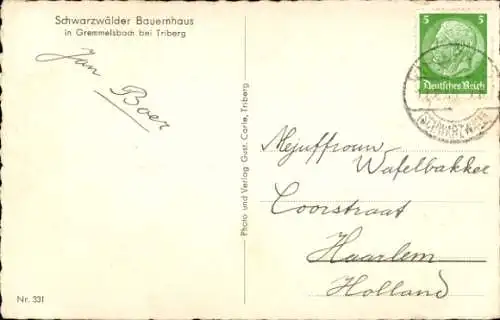 Schwarzwälder Bauernhaus
in Gremmelsbach bei Triberg
Jan Boer
Photo und Verlag Gust. Carle, Triberg
Nr. 331
5 5
Deutsches Reich
(SCHWARZW.)
Mejuffrouw
Wafelbakker
Coorstraat
Haarlem
Holland